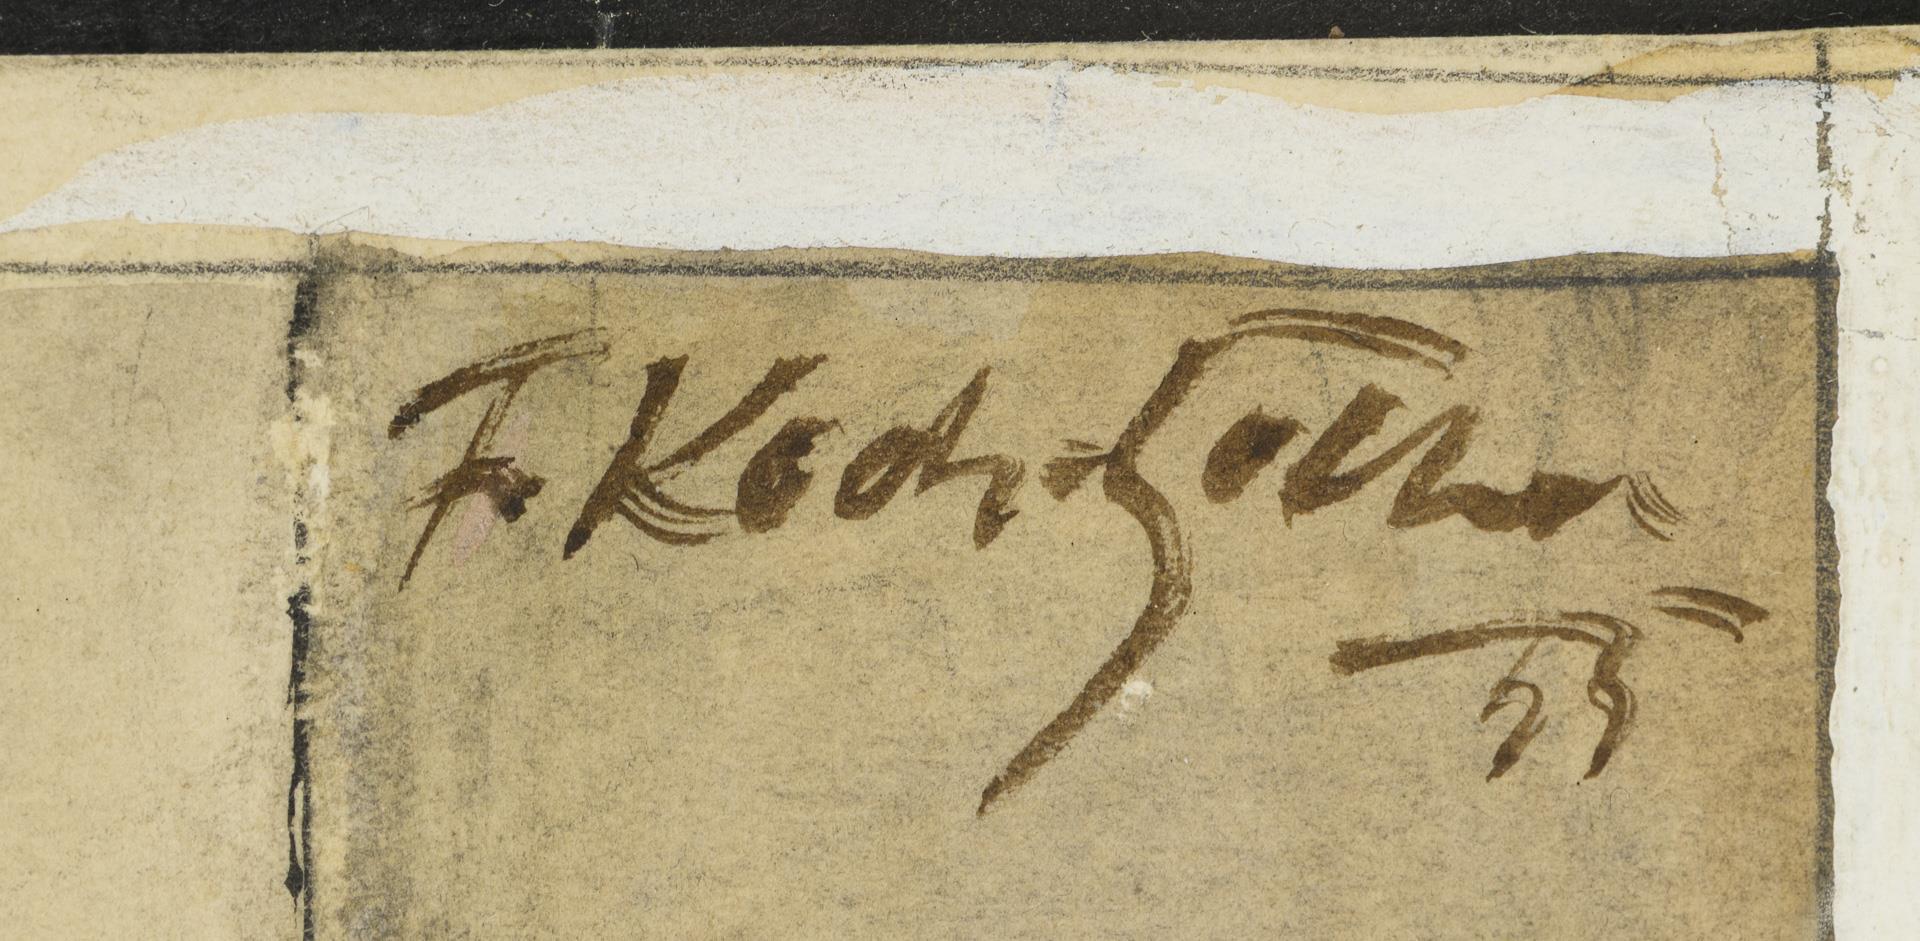 F. Koch-Gotha
55